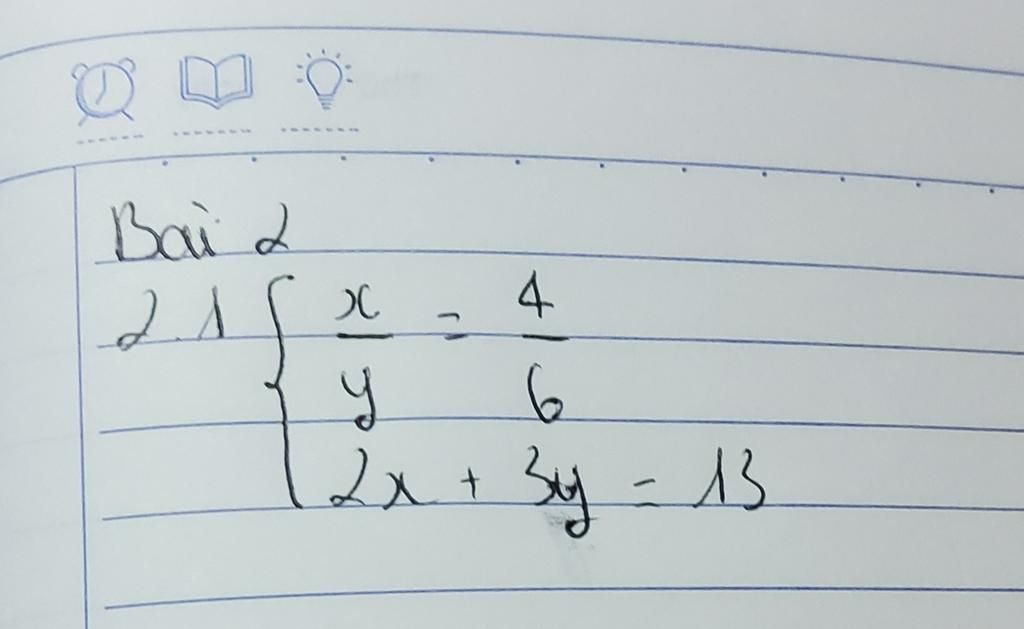 Bài 2
2.1 { x/y = 4/6
2x + 3y = 13